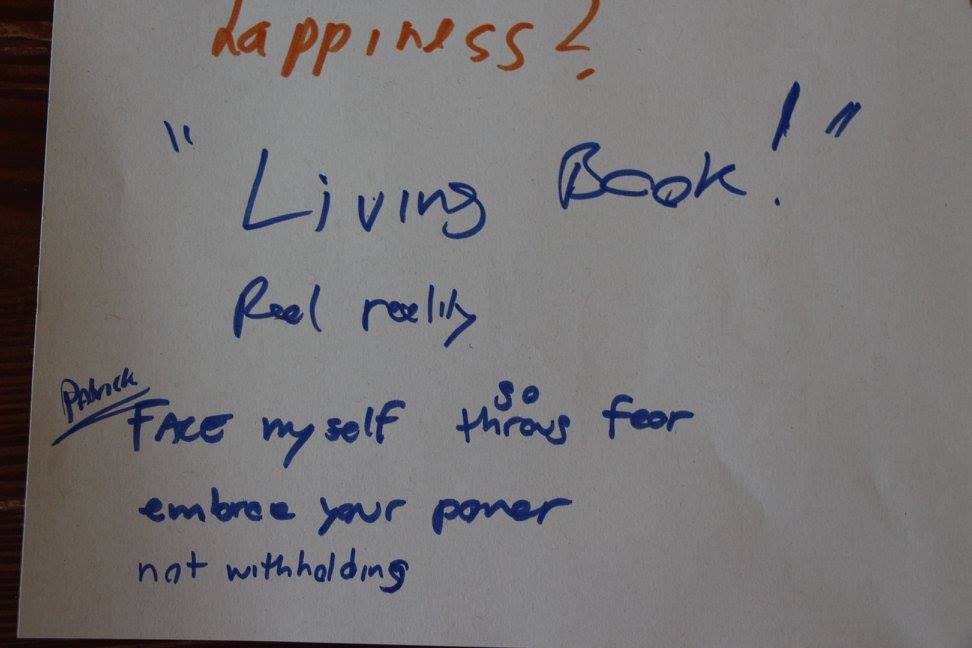 happiness?
"Living Book!"
Real reality
Patrick
FACE myself so throug fear
embrace your power
not withholding